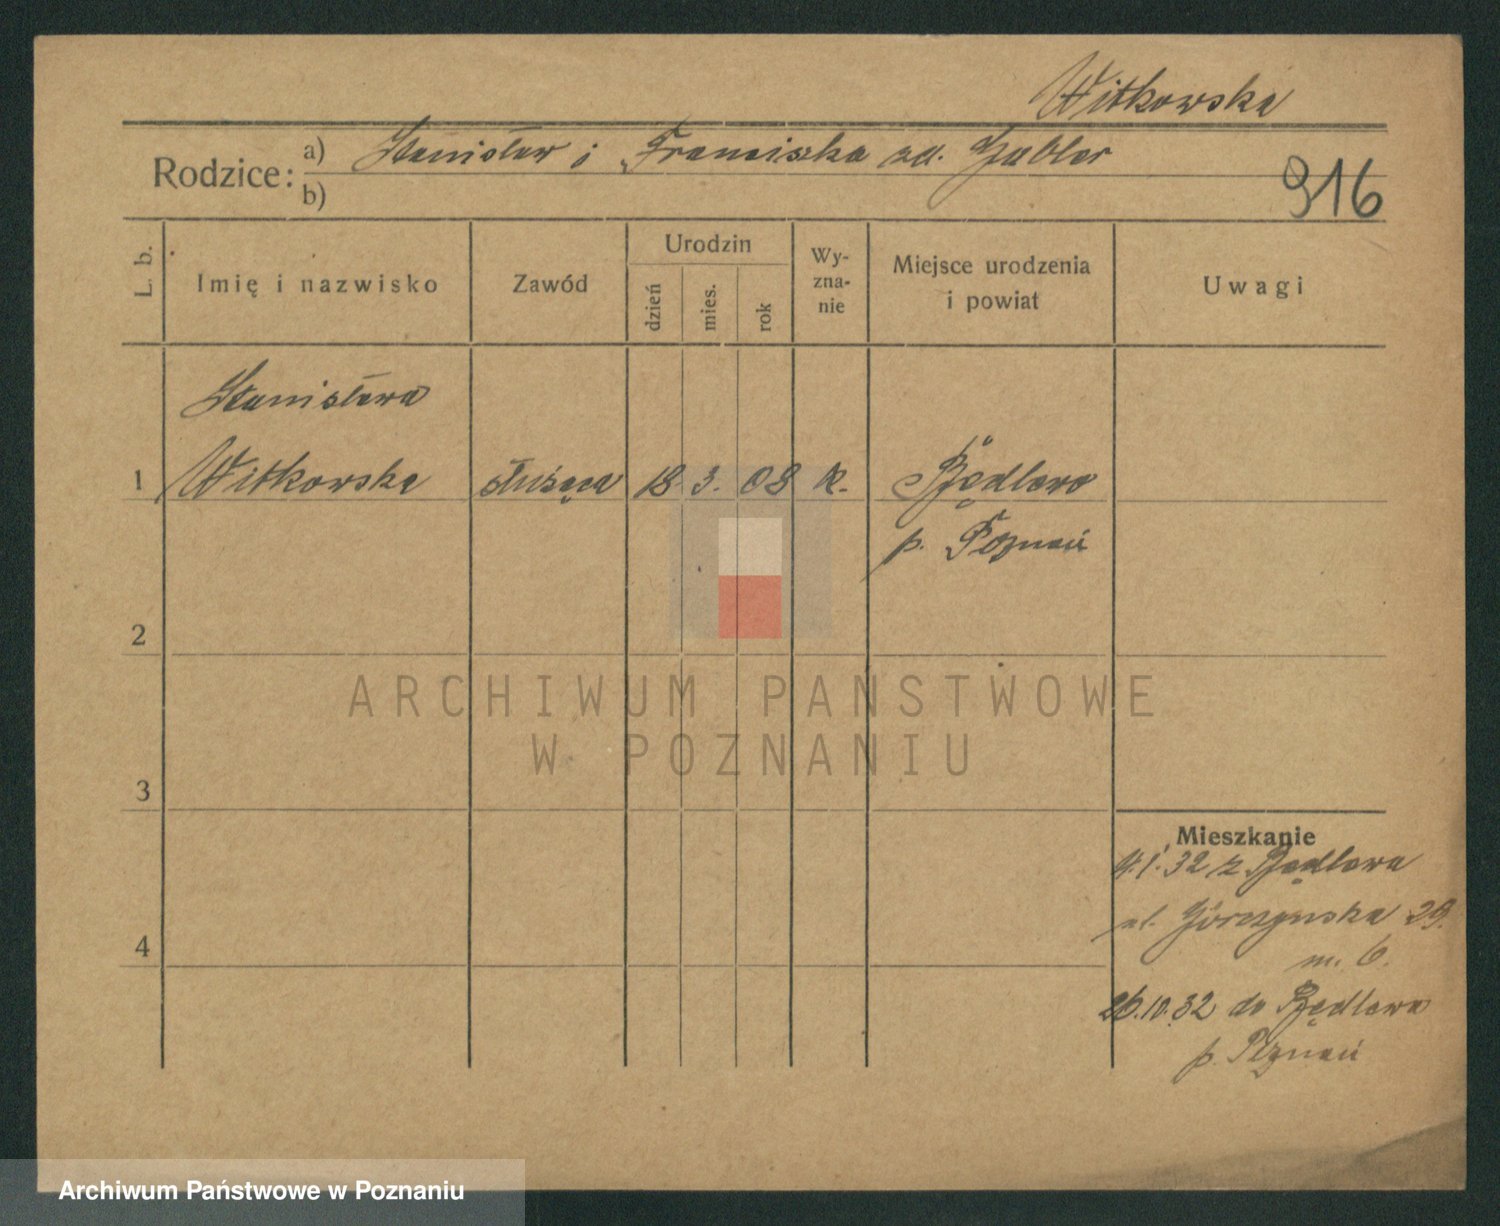 Witkowska
Rodzice: a) Stanisław i Franciszka zd. Gabler
b)
916
L. b.
Imię i nazwisko
Zawód
Urodzin
dzień
mies.
rok
Wy-
zna-
nie
Miejsce urodzenia
i powiat
Uwagi
Stanisława
1 Witkowska służąca 18 3. 08 k. Będlewo
p. Poznań
2
3
4
Mieszkanie
4.1.32 z Będlewa
ul. Górczyńska 29.
m. 6.
26.10.32 do Będlewa
p. Poznań
ARCHIWUM PAŃSTWOWE
W POZNANIU
Archiwum Państwowe w Poznaniu